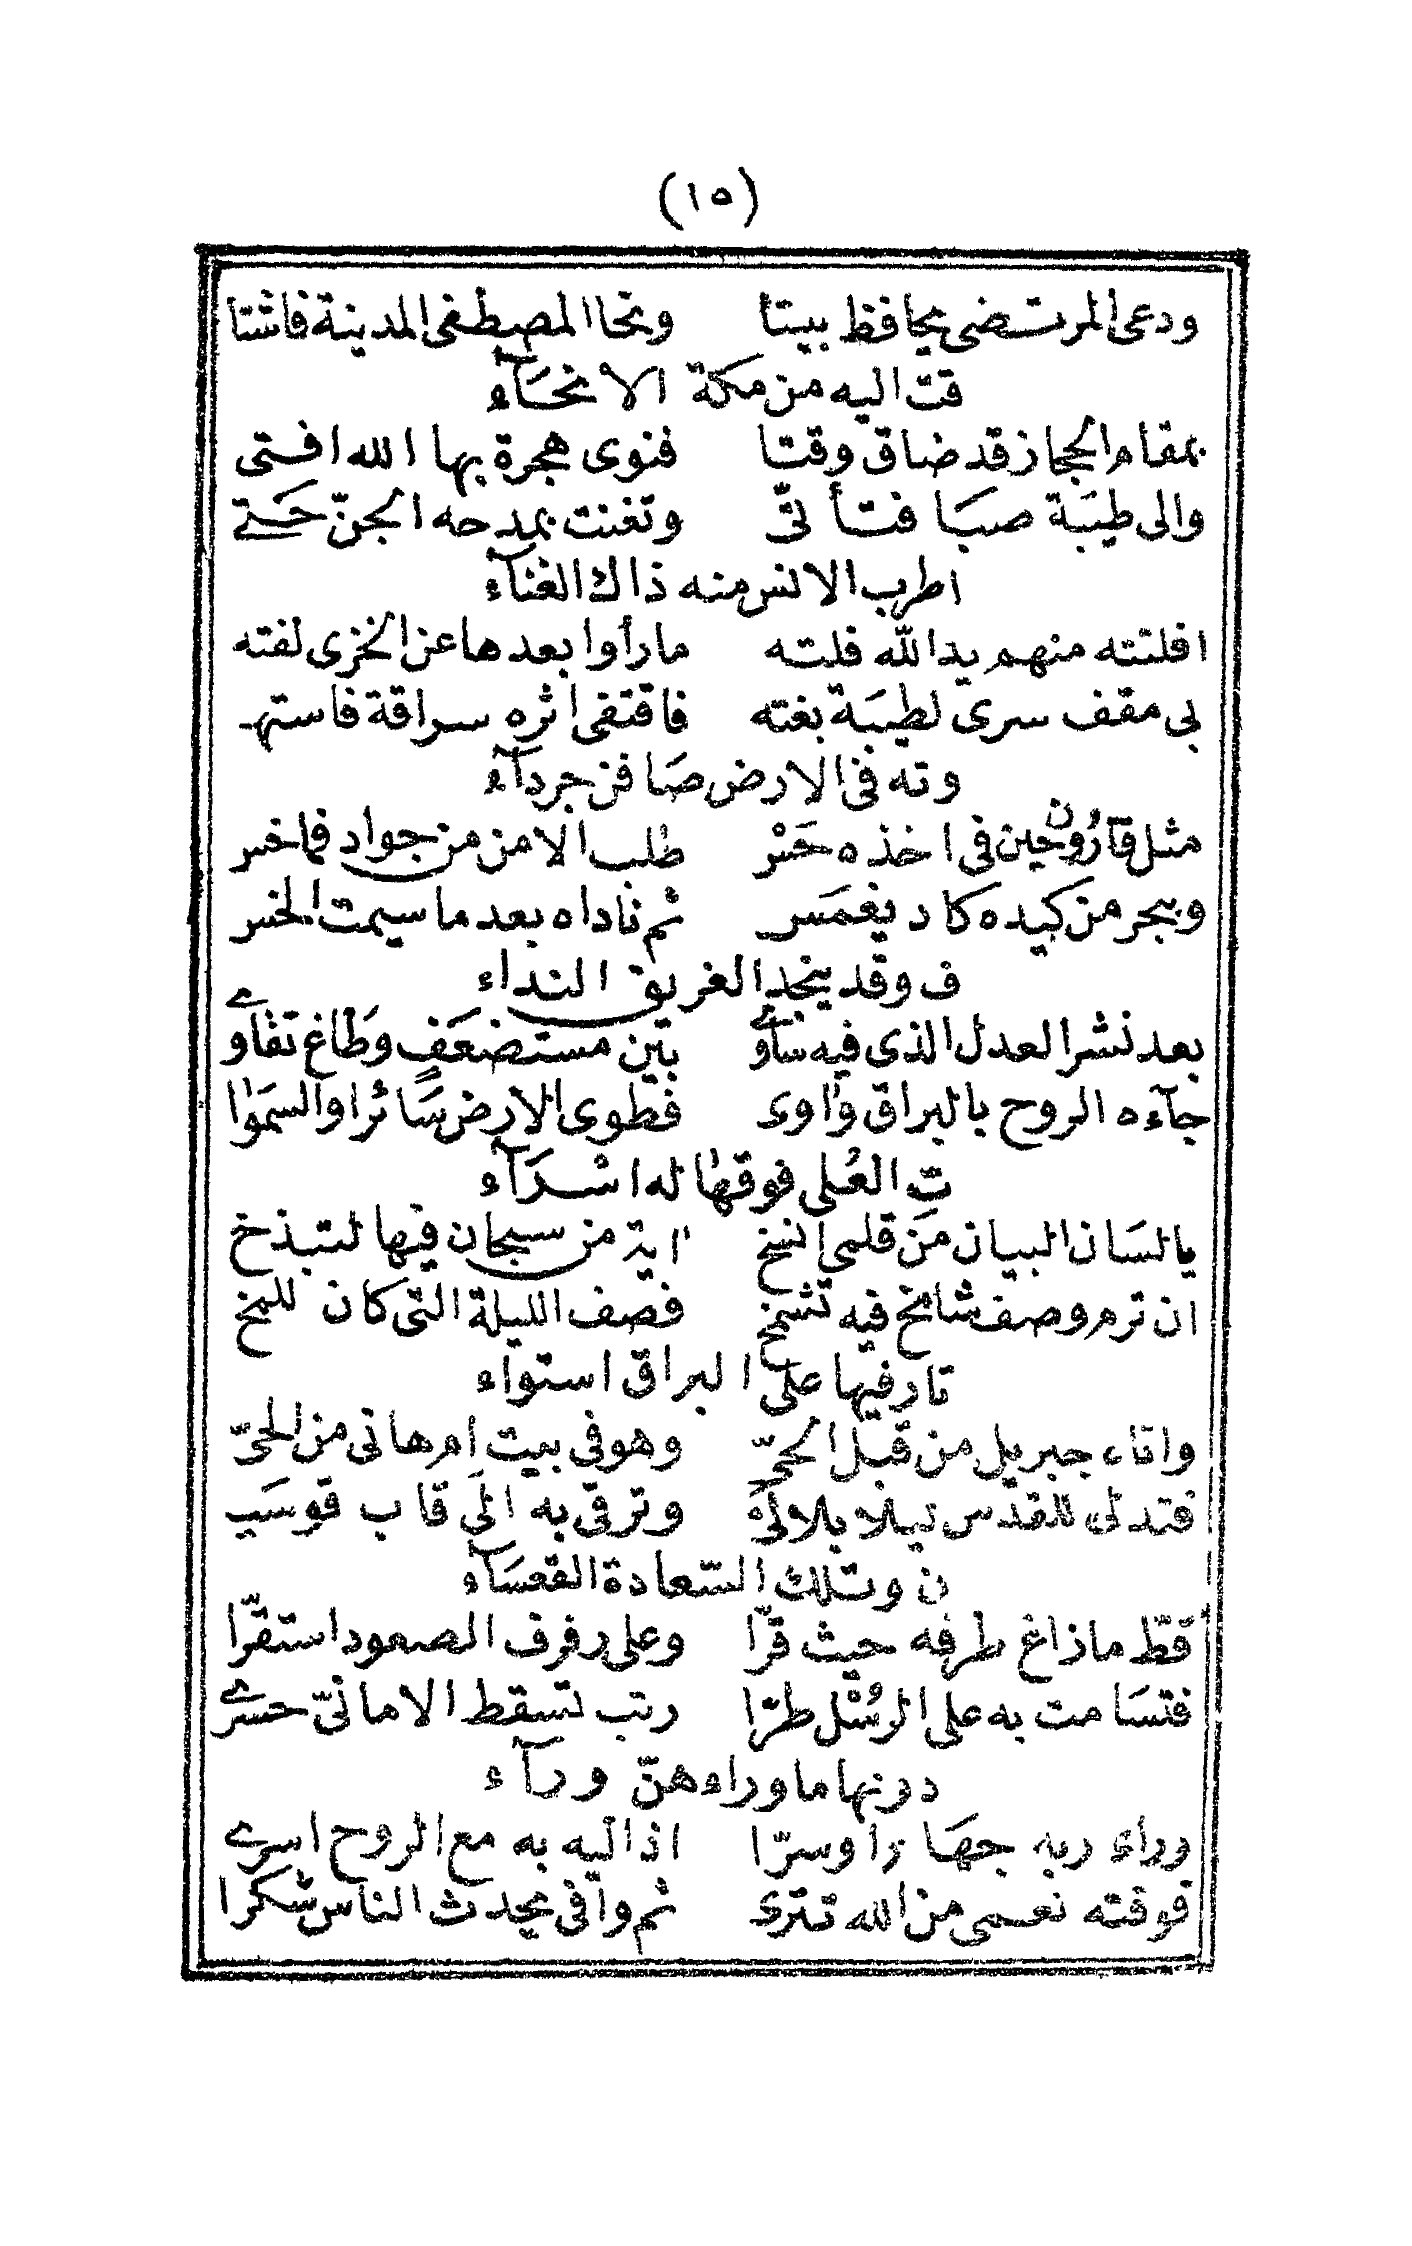 (١٥)
ودعى المرتضى يحافظ بيتا ونحا المصطفى المدينة فاشتا
قت اليه من مكة الانحآء
بمقام الحجاز قد ضاق وقتا فنوى هجرة بها الله افتى
والى طيبة صبا فتأتى وتغنت بمدحه الجنّ حتے
اطرب الانس منه ذاك الغنآء
افلتته منهم يد الله فلته ما رأوا بعدها عن الخزى لفته
بى مقف سرى لطيبة بغته فاقتفى اثره سراقة فاستهـ
وته فى الارض صافن جردآء
مثل قارون حين فى اخذه خسْر طلب الامن من جواد فما خسر
وببحر من كيده كاد يغمس ثم ناداه بعد ما سيمت الخسـ
ف وقد ينجد الغريق النداء
بعد نشر العدل الذى فيه ساوٰے بين مستضعَفٍ وطاغ تقاوٰے
جآءه الروح بالبراق واوى فطوى الارض سائرا والسمٰوا
تِ العُلى فوقها له اسْرَآء
يا لسان البيان من قلمى انسخ اية من سبحان فيها لتبذخ
ان ترم وصف شامخ فيه تشمخ فصف الليلة التى كان للمخ
تار فيها على البراق استواء
وافاء جبريل من قبل الحىّ وهو فى بيت ام هانى من الحىّ
فتدلى للقدس ليلا بلا لىّ وترقى به الى قاب قوسيـ
ن وتلك السّعادة القعسآء
قطّ ما زاغ طرفه حيث قرّا وعلى رفرف الصعود استقرّا
فتسامت به على الرسْل طرّا رتب تسقط الامانىّ حسرے
دونها ما وراءهنّ ورآء
وراى ربه جهارا وسرّا اذ اليه به مع الروح اسرے
فوفته نعمى من الله تترى ثم وافى يحدث الناس شكرا